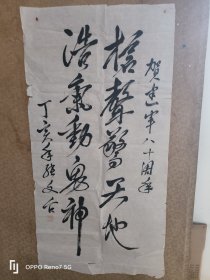 賀建軍八十周年
槍聲驚天地
浩氣動鬼神
丁亥年張文台
OPPO Reno7 5G